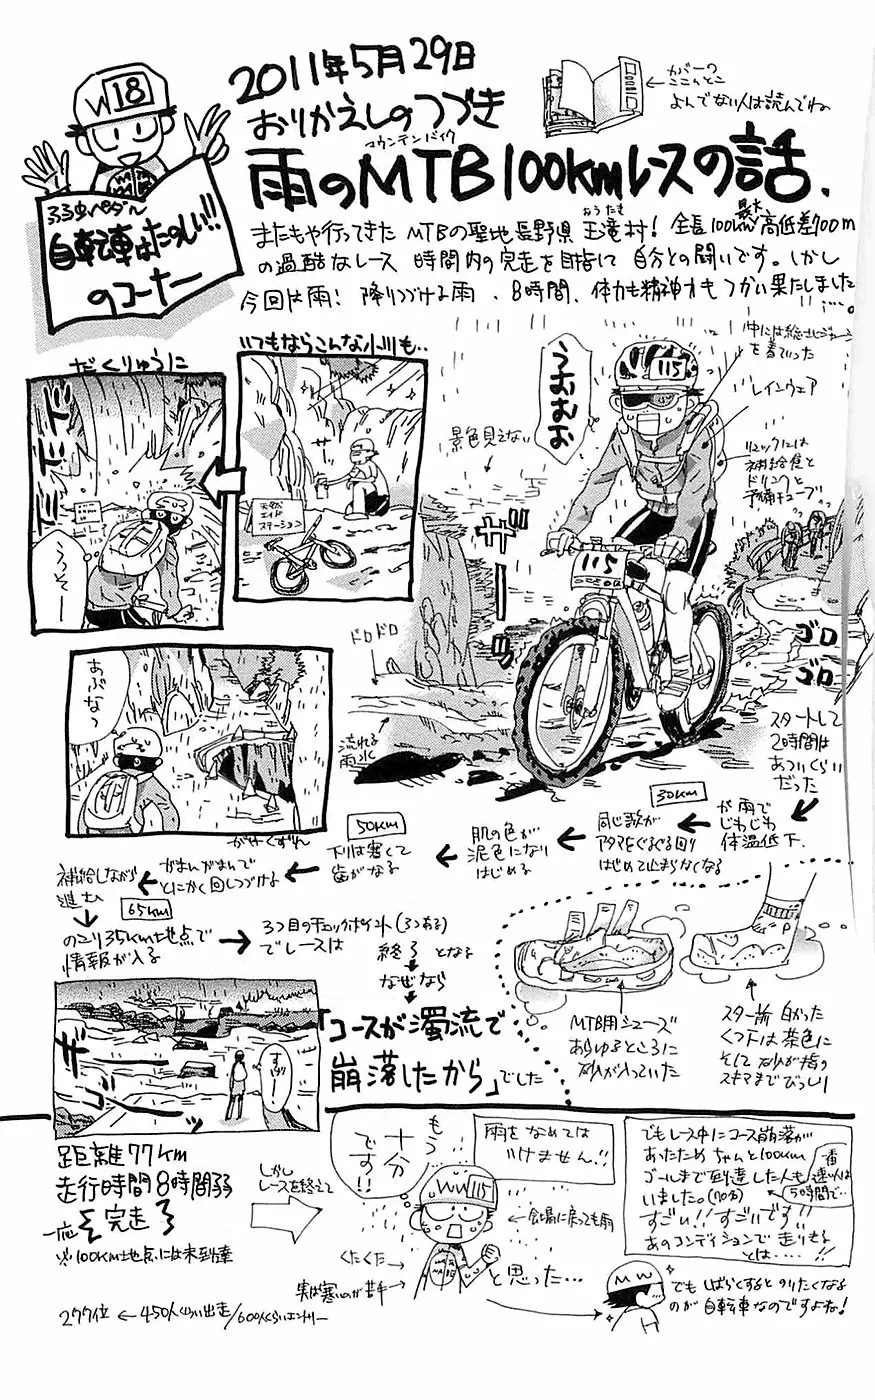 2011年5月29日
おりかえしのつづき
マウンテンバイク
雨のMTB100kmレースの話.
カバーの
ここんとこ
よんでない人は読んでね
W18
弱虫ペダル
自転車はたのしい!!
のコーナー
またもや行ってきた MTBの聖地長野県 玉滝村! 全長100km 最大高低差700m
おうたき
の過酷なレース 時間内の完走を目指して 自分との闘いです。しかし
今回は雨! 降りつづける雨、8時間、体力も精神力もつかい果たしました…。
だくりゅうに
ドドドド
うっそー
いつもならこんな小川も..
天然
エイド
ステーション
うおむお
景色見えない
中には総北ジャージ
を着ていった
レインウェア
リュックには
補給食と
ドリンクと
予備チューブ
115
115
ザザ
ゴロゴロ
ドロドロ
流れる
雨水
あぶなっ
がけくずれ
スタートして
2時間は
あついくらい
だった
が雨で
じわじわ
体温低下.
30km
同じ歌が
アタマをぐるぐる回り
はじめて止まらなくなる
肌の色が
泥色になり
はじめる
50km
下りは寒くて
歯がなる
がまんがまんで
とにかく回しつづける
補給しながら
進む
65km
のこり35km地点で
情報が入る
3つ目のチェックポイント(3つある)
でレースは
終了となる
なぜなら
「コースが濁流で
崩落したから」でした
MTB用シューズ
あらゆるところに
砂が入っていた
スタート前 白かった
くつ下は茶色に
そして砂が指の
スキマまでびっしり
ザーッ
すげー
距離77km
走行時間8時間弱
一応 完走
※100km地点には未到達
277位 ← 450人くらい出走/600人くらいエントリー
しかし
レースを終えて
もう
十分
です!!
WW115
雨をなめては
いけません!!
会場に戻っても雨
くたくた
実は寒いのが苦手
と思った…
でもレース中にコース崩落が
あったため ちゃんと100km
ゴールまで到達した人も
いました。(70分)
一番
速い人は
5時間で…
すごい!! すごいです!!
あのコンディションで走りきる
とは……!!
MW
でも しばらくすると のりたくなる
のが 自転車なのですよね!